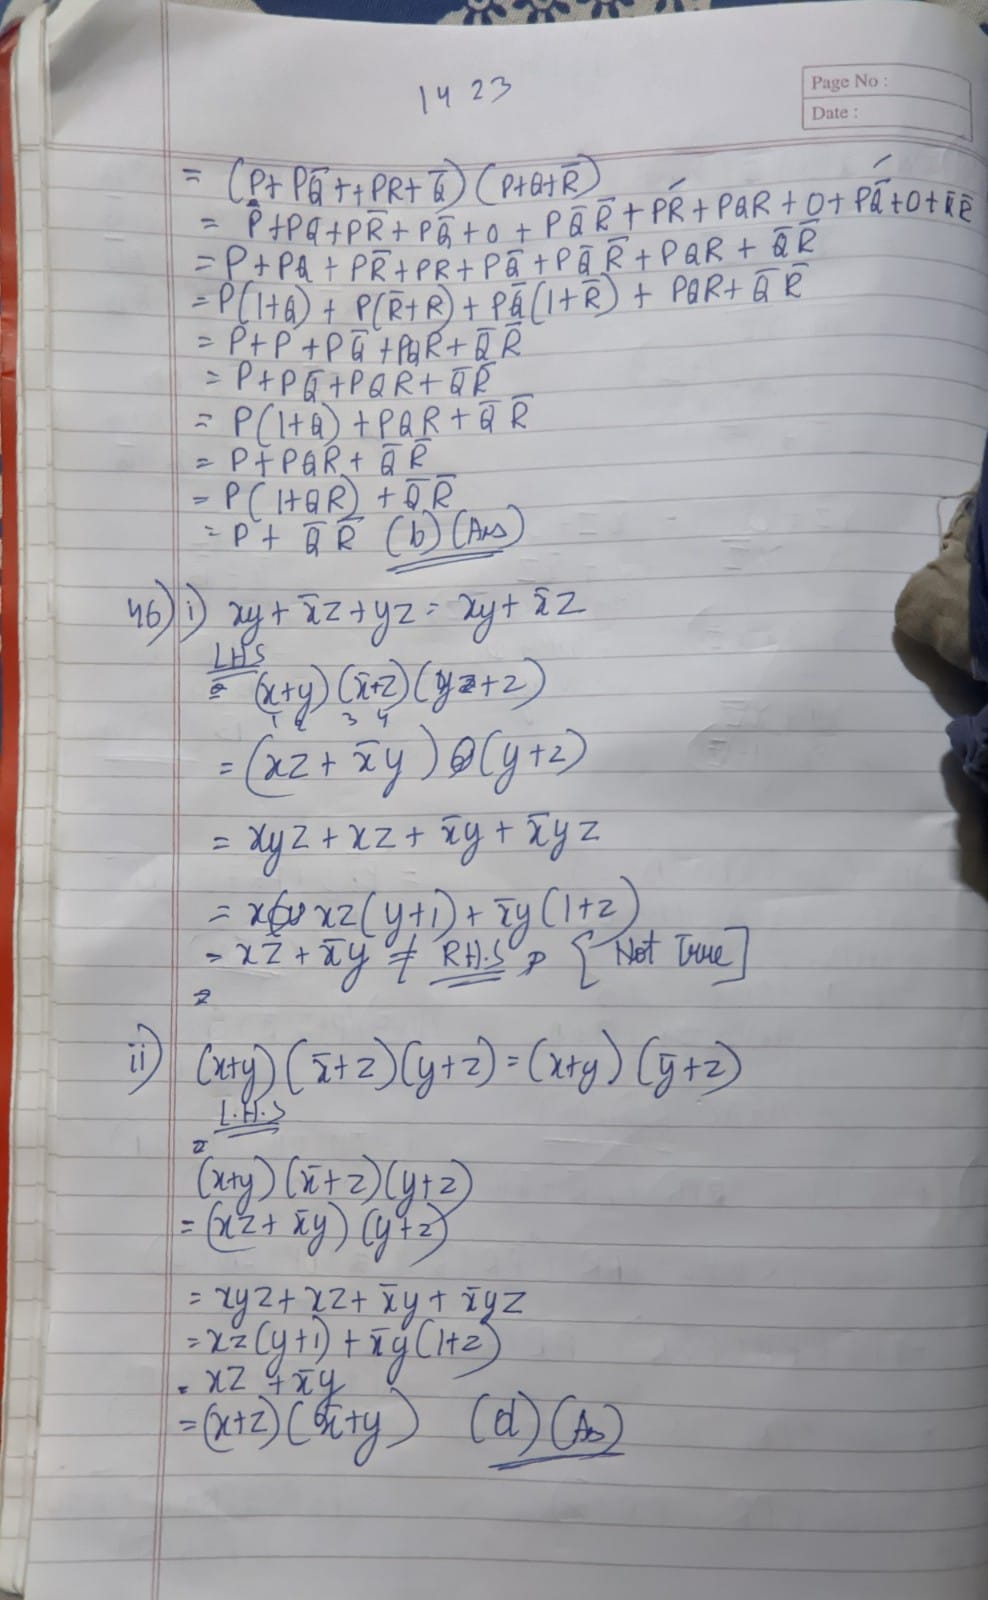 14 23
Page No :
Date :
= (P + PQ̅ + + PR + Q̅) (P+Q+R̅)
= P + PQ + PR̅ + PQ̅ + 0 + PQ̅R̅ + PR + PQR + 0 + PQ̅ + 0 + Q̅R̅
= P + PQ + PR̅ + PR + PQ̅ + PQ̅R̅ + PQR + Q̅R̅
= P(1+Q) + P(R̅+R) + PQ̅(1+R̅) + PQR + Q̅R̅
= P + P + PQ̅ + PQR + Q̅R̅
= P + PQ̅ + PQR + Q̅R̅
= P(1+Q) + PQR + Q̅R̅
= P + PQR + Q̅R̅
= P(1+QR) + Q̅R̅
= P + Q̅R̅ (b) (Ans)
46) i) xy + x̅z + yz = xy + x̅z
LHS
= (x+y) (x̅+z) (y+z)
1 2 3 4
= (xz + x̅y) (y+z)
= xyz + xz + x̅y + x̅yz
= xz(y+1) + x̅y(1+z)
= xz + x̅y ≠ R.H.S [Not True]
ii) (x+y) (x̅+z) (y+z) = (x+y) (y̅+z)
L.H.S
=
(x+y) (x̅+z) (y+z)
= (xz + x̅y) (y+z)
= xyz + xz + x̅y + x̅yz
= xz(y+1) + x̅y(1+z)
= xz + x̅y
= (x+z) (x̅+y) (d) (As)